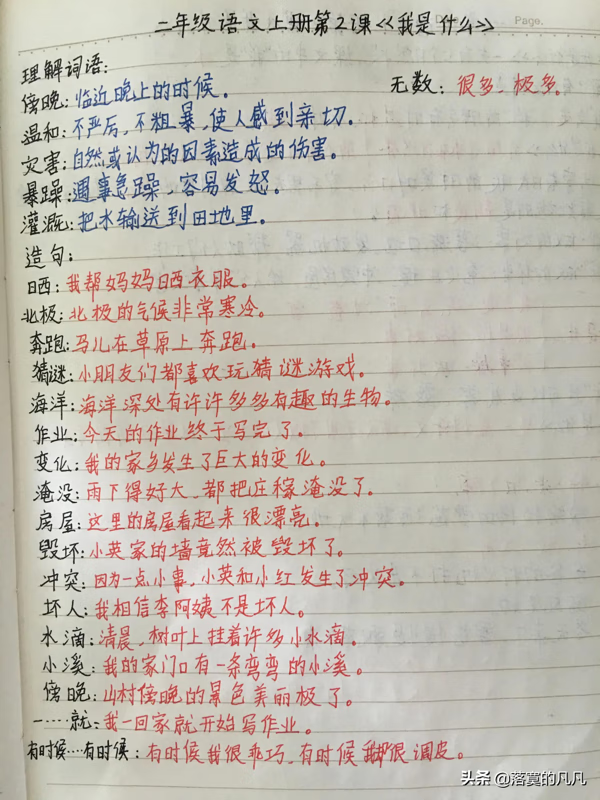 Page.
二年级语文上册第2课<<我是什么>>
理解词语:
傍晚:临近晚上的时候。 无数:很多,极多。
温和:不严厉,不粗暴,使人感到亲切。
灾害:自然或认为的因素造成的伤害。
暴躁:遇事急躁,容易发怒。
灌溉:把水输送到田地里。
造句:
晒:我帮妈妈晒衣服。
北极:北极的气候非常寒冷。
奔跑:马儿在草原上奔跑。
猜谜:小朋友们都喜欢玩猜谜游戏。
海洋:海洋深处有许许多多有趣的生物。
作业:今天的作业终于写完了。
变化:我的家乡发生了巨大的变化。
淹没:雨下得好大,都把庄稼淹没了。
房屋:这里的房屋看起来很漂亮。
毁坏:小英家的墙竟然被毁坏了。
冲突:因为一点小事,小英和小红发生了冲突。
坏人:我相信李阿姨不是坏人。
水滴:清晨,树叶上挂着许多小水滴。
小溪:我的家门口有一条弯弯的小溪。
傍晚:山村傍晚的景色美丽极了。
一……就:我一回家就开始写作业。
有时候…有时候:有时候我很乖巧,有时候我却很调皮。
头条 @落寞的凡凡